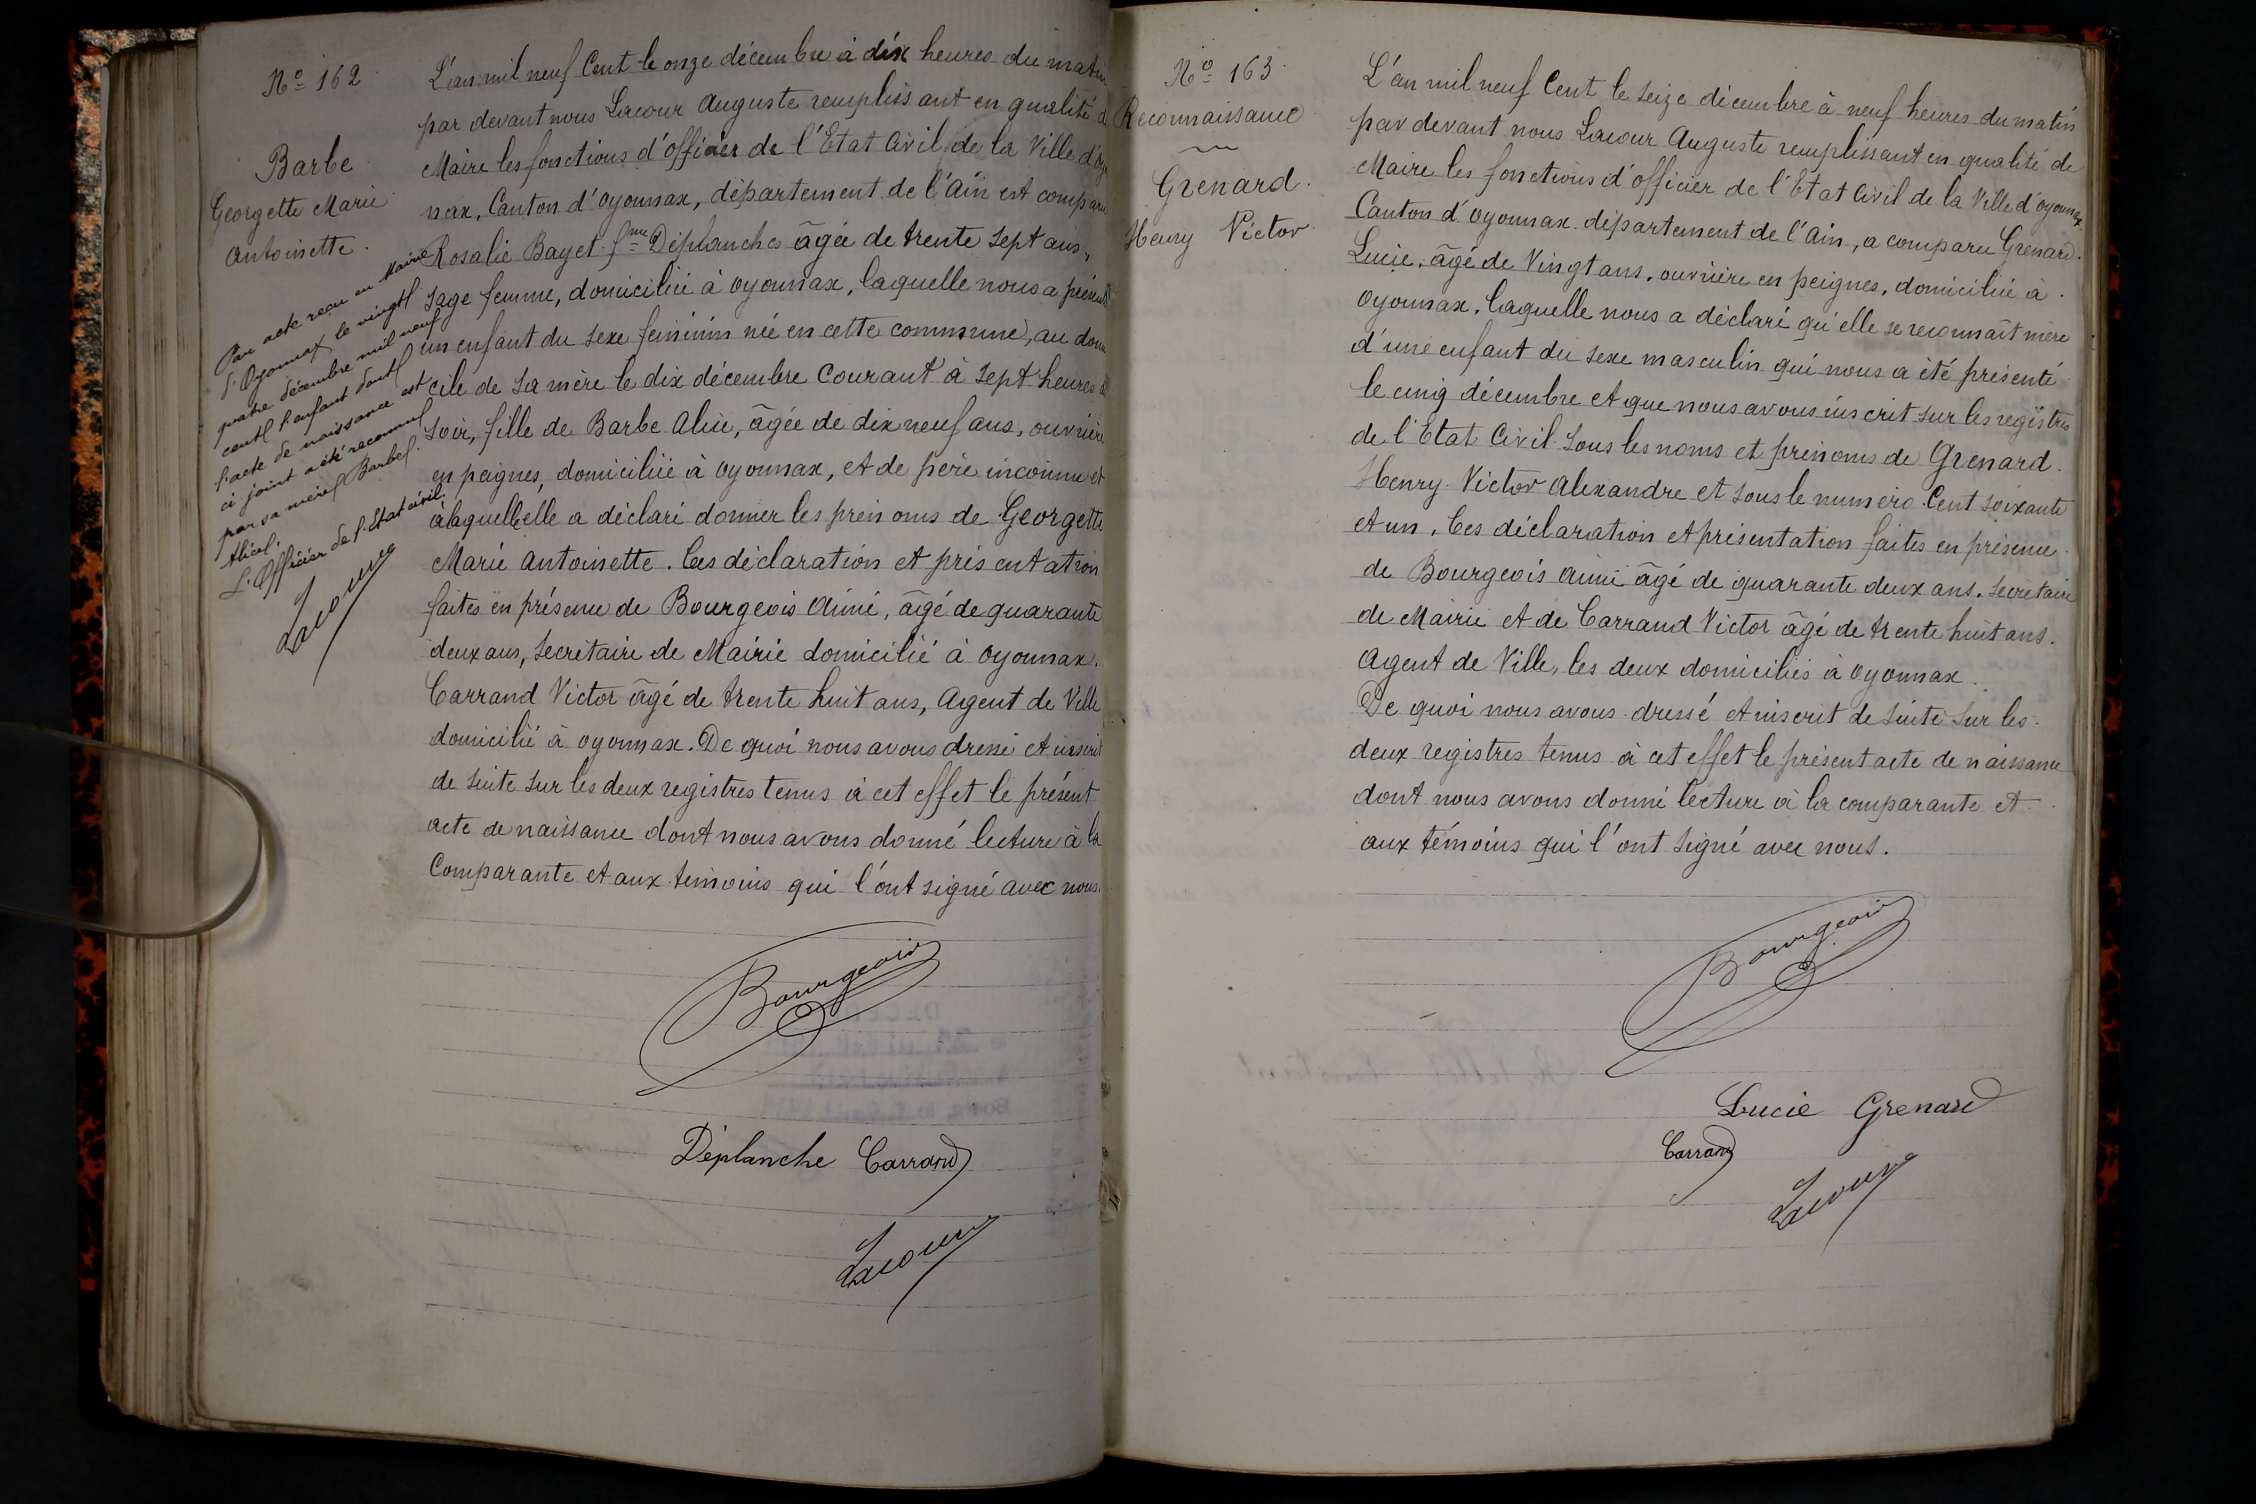 Nº 162
Barbe
Georgette Marie
Antoinette.
Par acte reçu en Mairie
d'Oyonnax le vingt
quatre décembre mil neuf
cent l'enfant dont
l'acte de naissance est
ci joint a été reconnu
par sa mère Barbe
Alice.
L'Officier de l'Etat civil.
Lacour
L'an mil neuf Cent le onze décembre à dix heures du matin
par devant nous Lacour Auguste remplissant en qualité d
Maire les fonctions d'officier de l'Etat Civil de la Ville d'Oyo
nax, Canton d'Oyonnax, département de l'Ain est comparu
Rosalie Bayet fme Déplanches âgée de trente sept ans,
sage femme, domiciliée à Oyonnax, laquelle nous a présenté
un enfant du sexe féminin née en cette commune, au domi
cile de sa mère le dix décembre Courant à sept heures d
soir, fille de Barbe Alice, âgée de dix neuf ans, ouvrière
en peignes, domiciliée à Oyonnax, et de père inconnu et
à laquelle elle a déclaré donner les prénoms de Georgette
Marie Antoinette. Ces déclaration et présentation
faites en présence de Bourgeois Aimé, âgé de quarante
deux ans, Secrétaire de Mairie domicilié à Oyonnax.
Carrand Victor âgé de trente huit ans, Agent de Ville
domicilié à Oyonnax. De quoi nous avons dressé et inscrit
de suite sur les deux registres tenus à cet effet le présent
acte de naissance dont nous avons donné lecture à la
Comparante et aux témoins qui l'ont signé avec nous.
Bourgeois
Déplanche Carrand
Lacour
Nº 163
Reconnaissance
Grenard.
Henry Victor
L'an mil neuf Cent le seize décembre à neuf heures du matin
par devant nous Lacour Auguste remplissant en qualité de
Maire les fonctions d'officier de l'Etat Civil de la Ville d'Oyonnax
Canton d'Oyonnax département de l'Ain, a comparu Grenard
Lucie, âgé de Vingt ans, ouvrière en peignes, domiciliée à
Oyonnax, laquelle nous a déclaré qu'elle se reconnaît mère
d'une enfant du sexe masculin qui nous a été présenté
le cinq décembre et que nous avons inscrit sur les registres
de l'Etat Civil sous les noms et prénoms de Grenard.
Henry Victor Alexandre et sous le numéro Cent soixante
et un. Ces déclaration et présentation faites en présence
de Bourgeois Aimé âgé de quarante deux ans, Secrétaire
de Mairie et de Carrand Victor âgé de trente huit ans.
Agent de Ville, les deux domiciliés à Oyonnax.
De quoi nous avons dressé et inscrit de suite sur les
deux registres tenus à cet effet le présent acte de naissance
dont nous avons donné lecture à la comparante et
aux témoins qui l'ont signé avec nous.
Bourgeois
Lucie Grenard
Carrand
Lacour